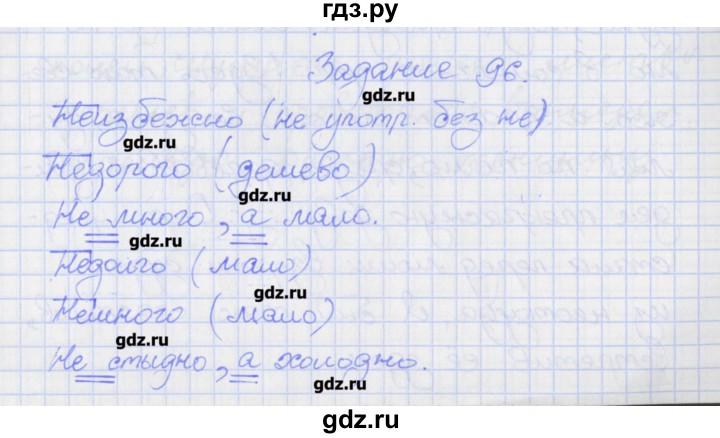 гдз.ру
Задание 96.
gdz.ru
Неизбежно (не употр. без не)
gdz.ru
Недорого (дешево)
gdz.ru
Не много, а мало.
gdz.ru
Недолго (мало)
gdz.ru
Немного (мало)
gdz.ru
Не стыдно, а холодно.
gdz.ru
gdz.ru